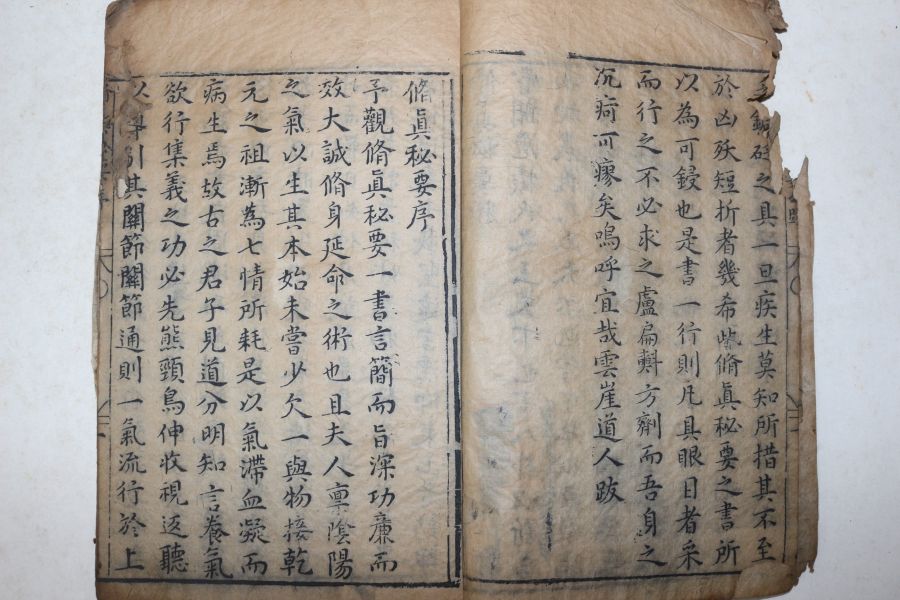 之具一旦疾生莫知所措其不至
於凶殀短折者幾希此脩眞秘要之書所
以為可鋟也是書一行則凡具眼目者采
而行之不必求之盧扁㪺方劑而吾身之
沉疴可瘳矣嗚呼宜哉雲崖道人跋
脩眞秘要序
予觀脩眞秘要一書言簡而旨深功亷而
效大誠脩身延命之術也且夫人禀陰陽
之氣以生其本始未嘗少欠一與物接乾
元之祖漸為七情所耗是以氣滯血凝而
病生焉故古之君子見道分明知言養氣
欲行集義之功必先熊頸鳥伸收視返聽
引其關節關節通則一氣流行於上